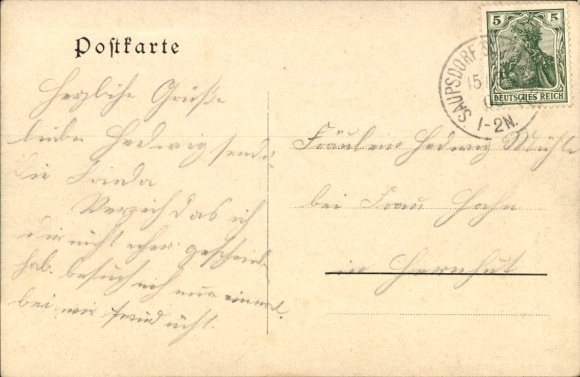 Postkarte
5 5
DEUTSCHES REICH
SAUPSDORF
15.
1-2N.
Herzliche Grüße
liebe Hedwig sendet
die Linda
Verzeih das ich
dir nicht eher geschrieb
hab. besuch mich nur einmal
bei mir
Fräulein Hedwig Mühle
bei Frau Hahn
in Herrnhut